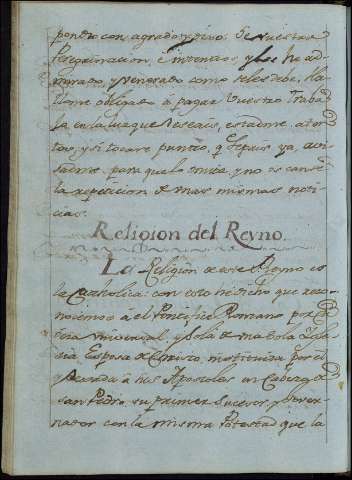 pondio con agrado
Peregrinacion, è intentos, y les ha ad
mirado, y venerado como se les debe,
tiene obligado à pagar vuestro traba
Jo en lo que deseais, estadme aten
tos, y si tocare punto, q sepais ya, avi
sadme para que lo omita y no os canse
la repeticion de unas mismas noti
cias.
Religion del Reyno.
La Religion de este Reyno es
la Catholica: con esto he dicho que reco
nocemos à el Pontifice Romano por Ca
beza universal, y sola de una sola Igle
sia Esposa de Christo, instituida por el
y à sus Apostoles en Cabeza de
San Pedro su primer Sucesor, y Gover
nador con la misma Potestad que la